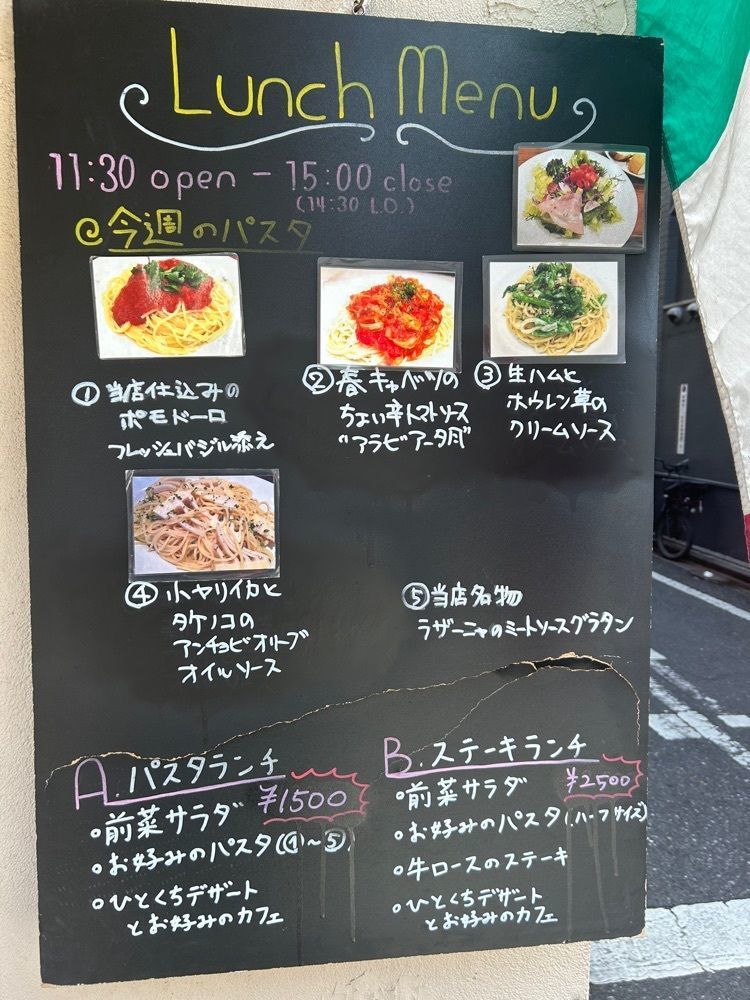 Lunch Menu
11:30 open - 15:00 close
(14:30 L.O.)
@今週のパスタ
① 当店仕込みの
ポモドーロ
フレッシュバジル添え
② 春キャベツの
ちょい辛トマトソース
"アラビアータ風"
③ 生ハムと
ホウレン草の
クリームソース
④ 小ヤリイカと
タケノコの
アンチョビオリーブ
オイルソース
⑤ 当店名物
ラザーニャのミートソースグラタン
A.パスタランチ
¥1500
・前菜サラダ
・お好みのパスタ(①~⑤)
・ひとくちデザート
とお好みのカフェ
B.ステーキランチ
¥2500
・前菜サラダ
・お好みのパスタ(ハーフサイズ)
・牛ロースのステーキ
・ひとくちデザート
とお好みのカフェ